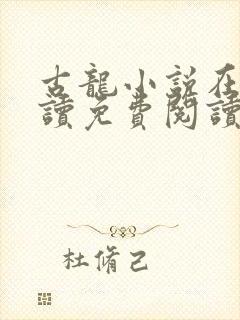 古龍小說在
讀免費閱讀
杜脩己